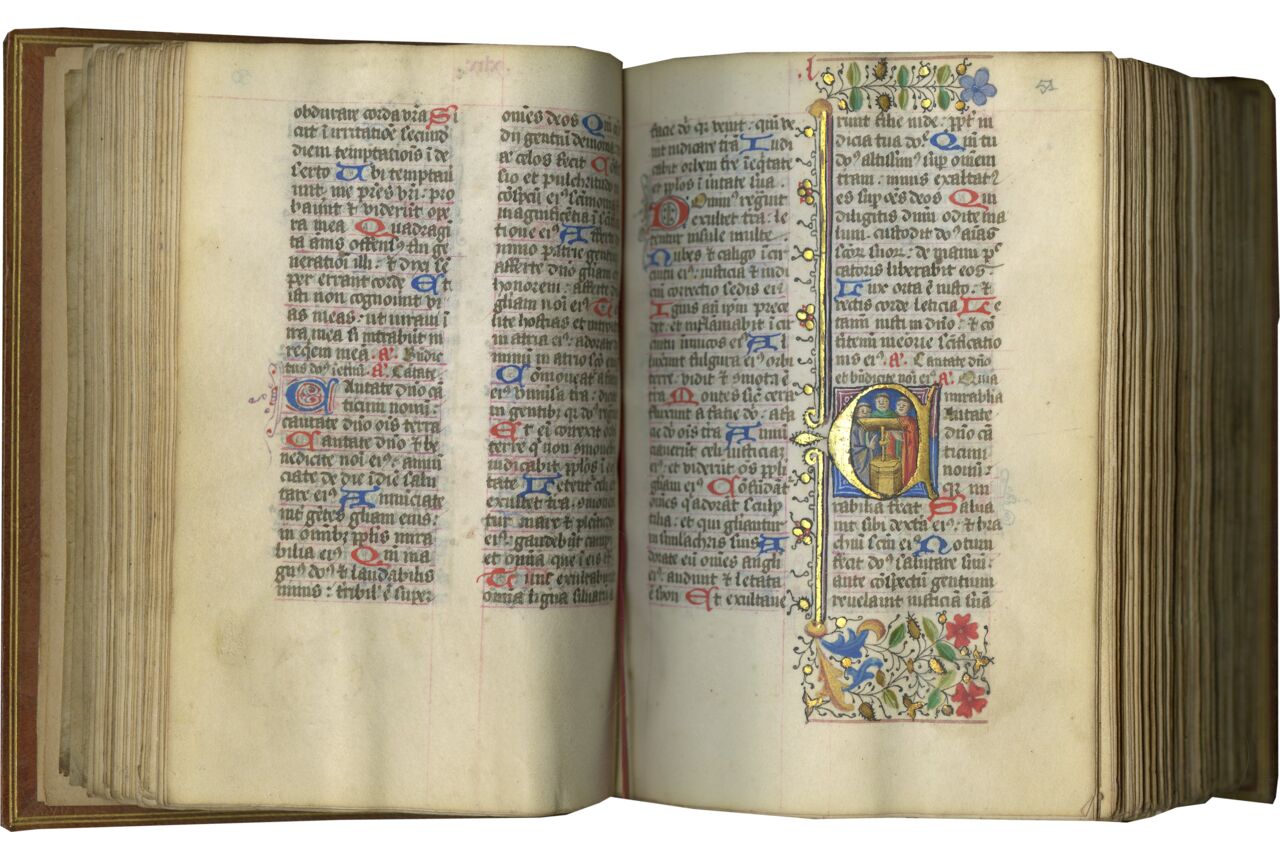 obdurare corda vr̄a Si
cut ī irritatiōe secund̄
diem temptatiōis ī de
serto Ubi temptau
unt me p̄res vr̄i: pro
bauūt & viderūt ope
ra mea Quadragī
ta ānis offensꝰ fui ge
neratiōi illi: & dixi sē
per errant corde Et
isti non cognouūt vi
as meas: ut iuraui ī
ira mea si ītrabūt in
reqiem meā. a᷒. Bn̄dic
a᷒. Cātate
Cantate dn̄o cā
ticum nouū:
cantate dn̄o oīs terra
Cantate dn̄o & be
nedicite noī eiꝰ: annū
ciate de die ī diē salu
tare eiꝰ Annūciate
int̄ gētes gl̄iam eius:
in om̄ibꝫ pp̄lis mira
bilia eiꝰ Qm̄ ma
gnꝰ do᷒ & laudabilis
nimis: t̄ribil̄ ē super
om̄es deos Qm̄ o
dii gentiū demonia
celos fecit Cōfes
sio et pulchritudo in
cōspcū eiꝰ: sc̄imonia
magnificētia ī sc̄ifica
tione eiꝰ Afferte
dn̄o patrie gentiū
afferte dn̄o gl̄iam et
honorem: afferte dn̄o
gl̄iam noī eiꝰ To
lite hostias et introite
in atria eiꝰ: adorate
dn̄m in atrio sc̄o eiꝰ
Cōmoueat᷑ a facie
eiꝰ vniūsa t̄ra: dicite
in gentibꝫ: qꝛ do᷒ regn
Et eī correxit orbē
terre q̄ non cōmoueb
iudicabit pp̄los ī eq̄
tate Letent᷑ celi et
exultet t̄ra: cōmoueat᷑
mare et plēitudo
eiꝰ: gaudebūt campi
et omīa que ī eis sūt
Tunc exultabunt
omīa ligna siluarū a
facie do᷒ qꝛ venit: qm̄ ve
nit iudicare t̄rā Iudi
cabit orbem t̄re ī eq̄tate
et pp̄los ī ūitate sua.
Dominꝰ regnūit
exultet t̄ra: le
tentur insule multe
Nubes & caligo ī cir
cūitu eiꝰ: iusticia & iudi
ciū correctio sedis eiꝰ
Ignis an̄ ip̄m prece
dit: et inflamabit ī cir
cūitu inimicos eiꝰ Al
luxerūt fulgura eiꝰ orbi
terre: vidit & cōmota ē
t̄ra Montes sic̄ cera
fluxerūt a facie do᷒: a fa
cie do᷒ oīs t̄ra Annū
ciauerūt celi iusticiā
eiꝰ: et viderūt oēs pp̄li
gl̄iam eiꝰ Cōfūdāt᷑
om̄es q̇ adorāt sculp
tilia: et qui gl̄iantur
in simulachris suis A
dorate eū om̄es angli
eiꝰ audiuit & letata
ē syon Et exultaue
l
51
runt filie iude: ꝓpt̄ iu
dicia tua do᷒ Qm̄ tu
do᷒ altissimꝰ suꝑ om̄em
t̄ram: nimis exaltatꝰ
es suꝑ oēs deos Qui
diligitis dn̄m odite ma
lum: custodit do᷒ aīas
sc̄orꝫ suorꝫ: de manu pc̄
catoris liberabit eos.
Lux orta ē iusto: &
rectis corde leticia Le
tamī iusti in dn̄o: & cō
fitemī meōrie sc̄ificatio
nis eiꝰ. a᷒. Cantate dn̄o
et bn̄dicite noī eiꝰ. a᷒. Quia
mirabilia
Cantate
dn̄o cā
ticum
nouū:
qꝛ mi
rabilia fecit Salua
uit sibi dext̄a eiꝰ: & bra
chiū sc̄m eiꝰ Notum
fecit do᷒ salutare suū:
ante cōspectū gentium
reuelauit iusticiā suā